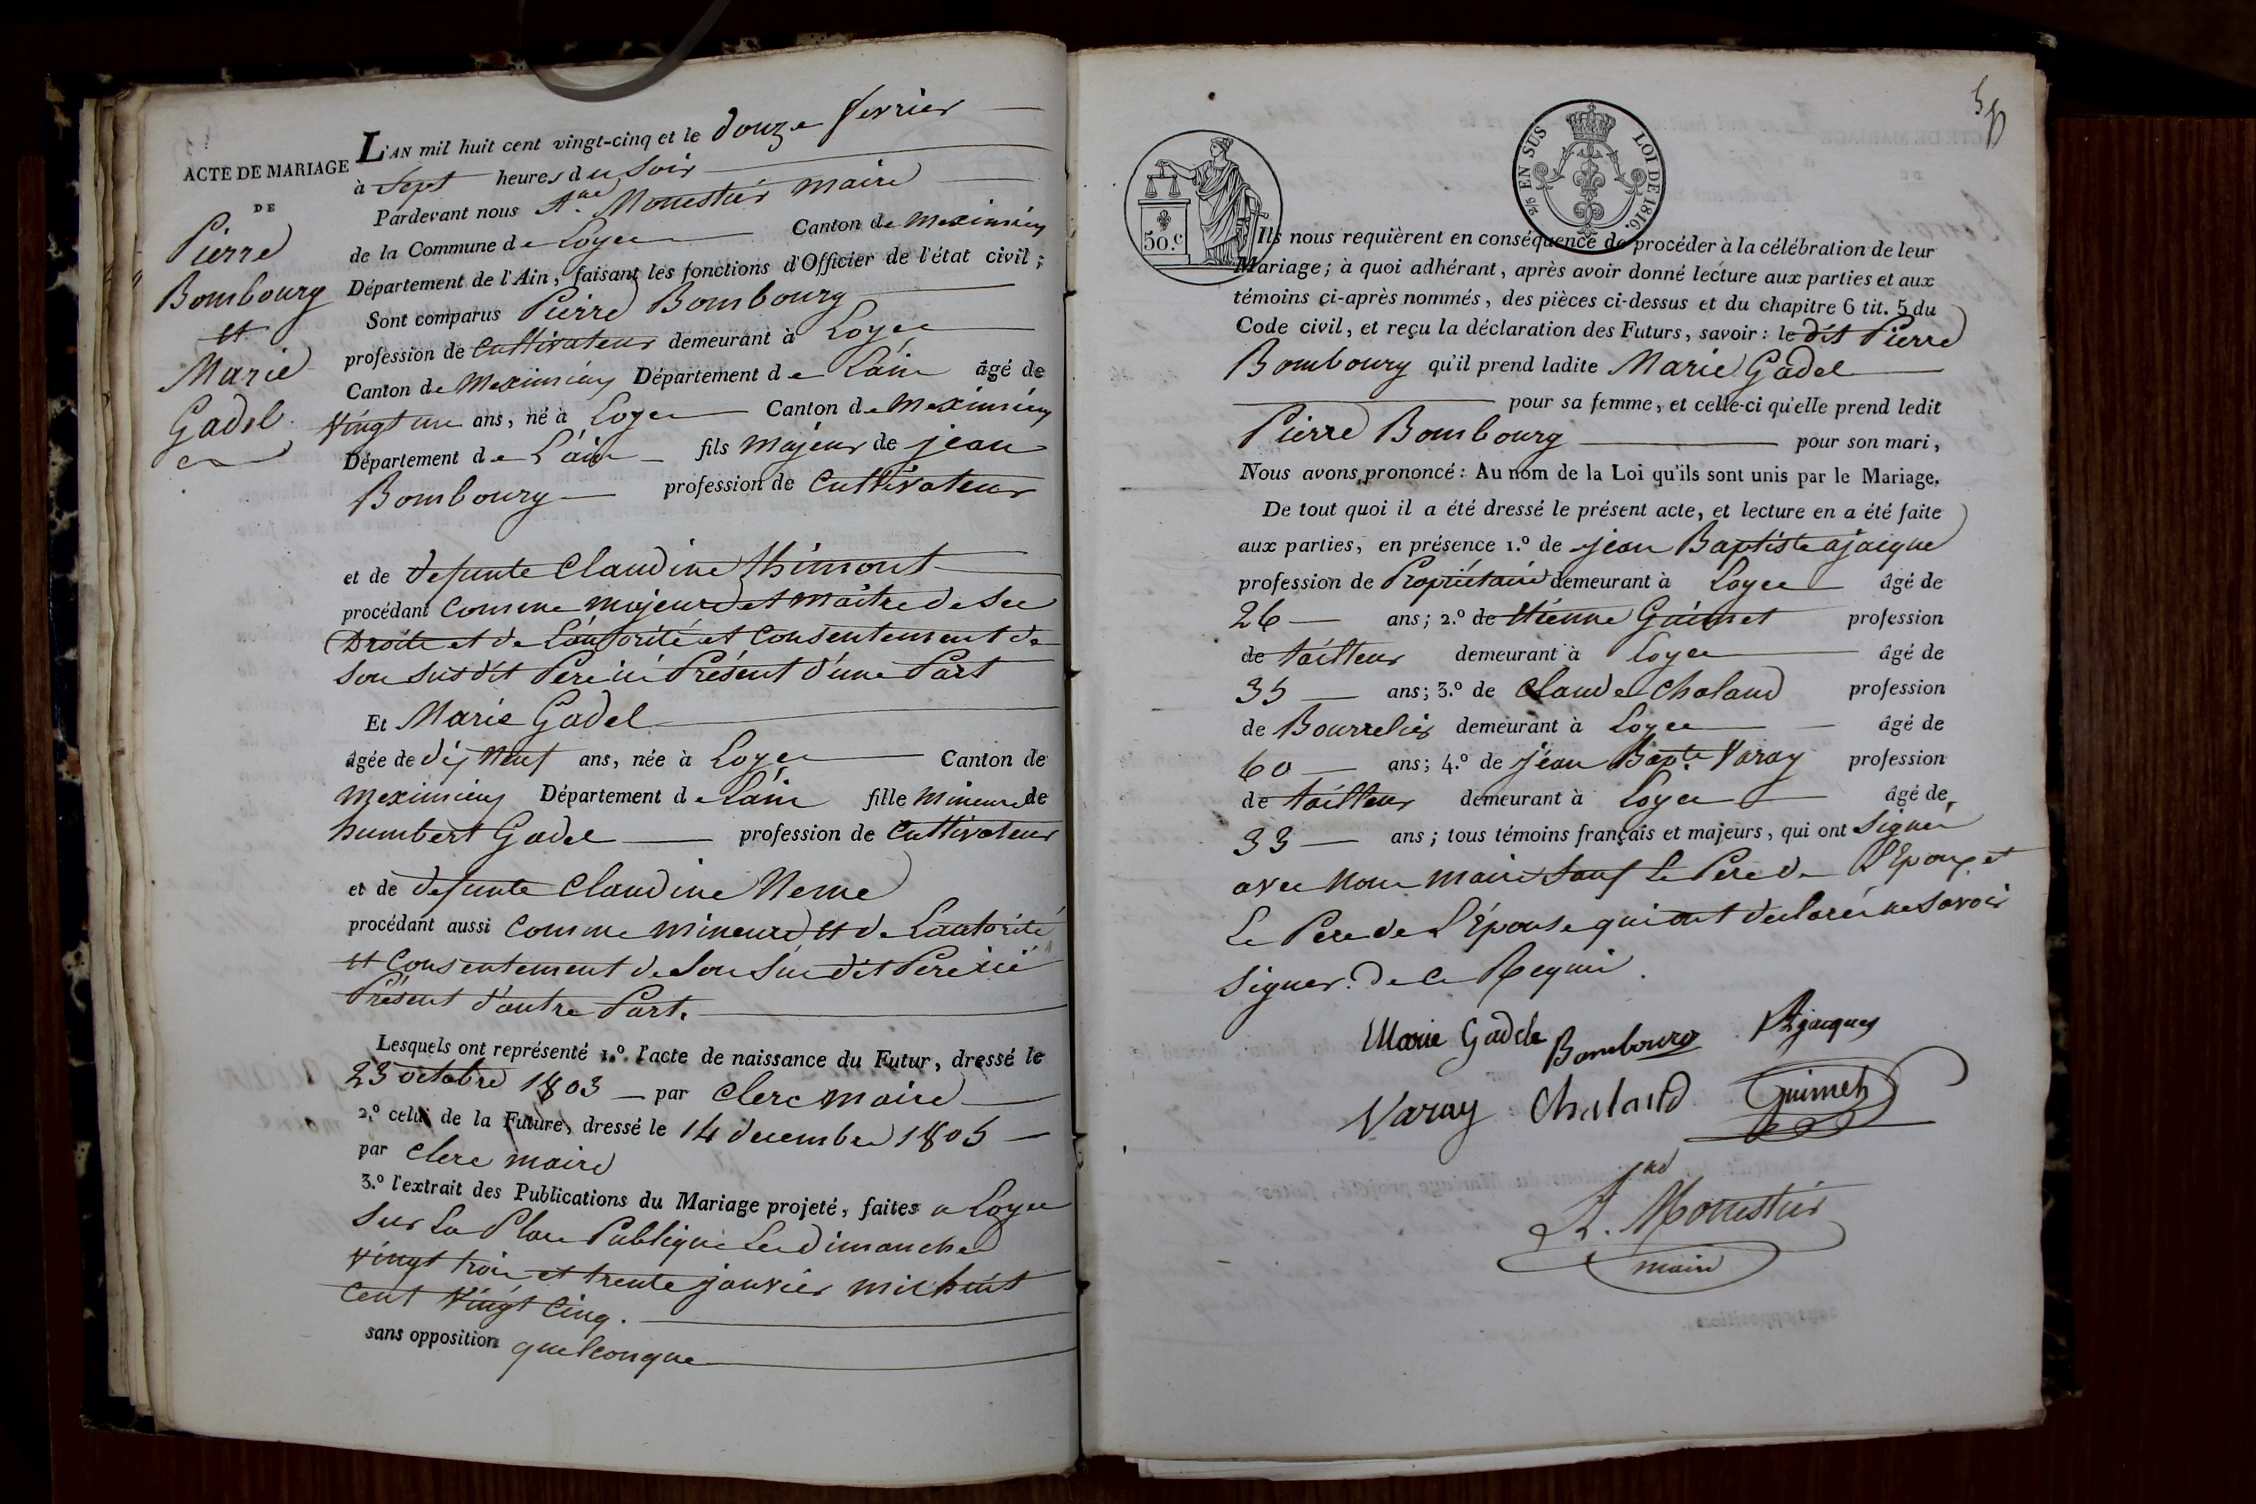 ACTE DE MARIAGE
DE
Pierre
Bombourg
et
Marie
Gadel
L'AN mil huit cent vingt-cinq et le douze fevrier
à Sept heures du Soir
Pardevant nous Mouestier maire
de la Commune de Loyee Canton de Meximieux
Département de l'Ain, faisant les fonctions d'Officier de l'état civil;
Sont comparus Pierre Bombourg
profession de Cultivateur demeurant à Loyee
Canton de Meximieux Département de Lain âgé de
Vingt un ans, né à Loyee Canton de Meximieux
Département de L'ain fils majeur de jean
Bombourg profession de Cultivateur
et de defunte Claudine thimont
procédant Comme majeur et maitre de Ses
Droits et de Lautorité et Consentement de
Son Sus dit Pere ici Présent d'une Part
Et Marie Gadel
âgée de dix Neuf ans, née à Loyee Canton de
Meximieux Département de Lain fille mineure de
humbert Gadel profession de Cultivateur
et de defunte Claudine Neme
procédant aussi Comme mineure et de Lautorité
et Consentement de Son Sus dit Pere ici
Présent d'autre Part.
Lesquels ont représenté 1.º l'acte de naissance du Futur, dressé le
23 octobre 1803 par Clerc maire
2.º celui de la Future, dressé le 14 decembre 1805
par Clerc maire
3.º l'extrait des Publications du Mariage projeté, faites a Loyee
Sur La Place Publique Les Dimanches
Vingt trois et trente janvier mil huit
Cent Vingt Cinq.
sans opposition quelconque
50.c
2/5 EN SUS LOI DE 1816.
Ils nous requièrent en conséquence de procéder à la célébration de leur
Mariage; à quoi adhérant, après avoir donné lecture aux parties et aux
témoins ci-après nommés, des pièces ci-dessus et du chapitre 6 tit. 5 du
Code civil, et reçu la déclaration des Futurs, savoir: le dit Pierre
Bombourg qu'il prend ladite Marie Gadel
pour sa femme, et celle-ci qu'elle prend ledit
Pierre Bombourg pour son mari,
Nous avons prononcé: Au nom de la Loi qu'ils sont unis par le Mariage.
De tout quoi il a été dressé le présent acte, et lecture en a été faite
aux parties, en présence 1.º de jean Baptiste ajacque
profession de Propriétaire demeurant à Loyee âgé de
26 ans; 2.º de etienne Guimet profession
de tailleur demeurant à Loyee âgé de
35 ans; 3.º de Claude Chaland profession
de Bourrelier demeurant à Loyee âgé de
60 ans; 4.º de jean Bapte Varay profession
de tailleur demeurant à Loyee âgé de
33 ans; tous témoins français et majeurs, qui ont Signés
avec nous maire Sauf Le Pere de L'Epoux et
Le Pere de L'Epouse qui ont declarés ne Savoir
Signer. de ce Requis.
Marie Gadele Bombourg Ajacques
Varay Chaland Guimet
Mouestier
maire